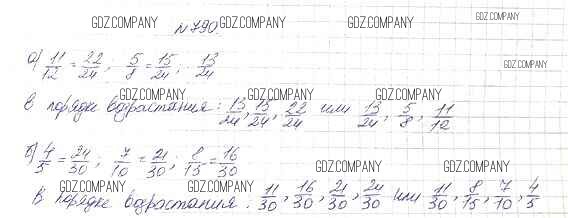 GDZ.COMPANY GDZ.COMPANY GDZ.COMPANY GDZ.COMPANY
№790.
а) 11/12 = 22/24; 5/8 = 15/24; 13/24
GDZ.COMPANY GDZ.COMPANY GDZ.COMPANY GDZ.COMPANY
в порядке возрастания: 13/24, 15/24, 22/24 или 13/24, 5/8, 11/12
б) 4/5 = 24/30; 7/10 = 21/30; 8/15 = 16/30
GDZ.COMPANY GDZ.COMPANY GDZ.COMPANY GDZ.COMPANY
В порядке возрастания: 11/30, 16/30, 21/30, 24/30 или 11/30, 8/15, 7/10, 4/5